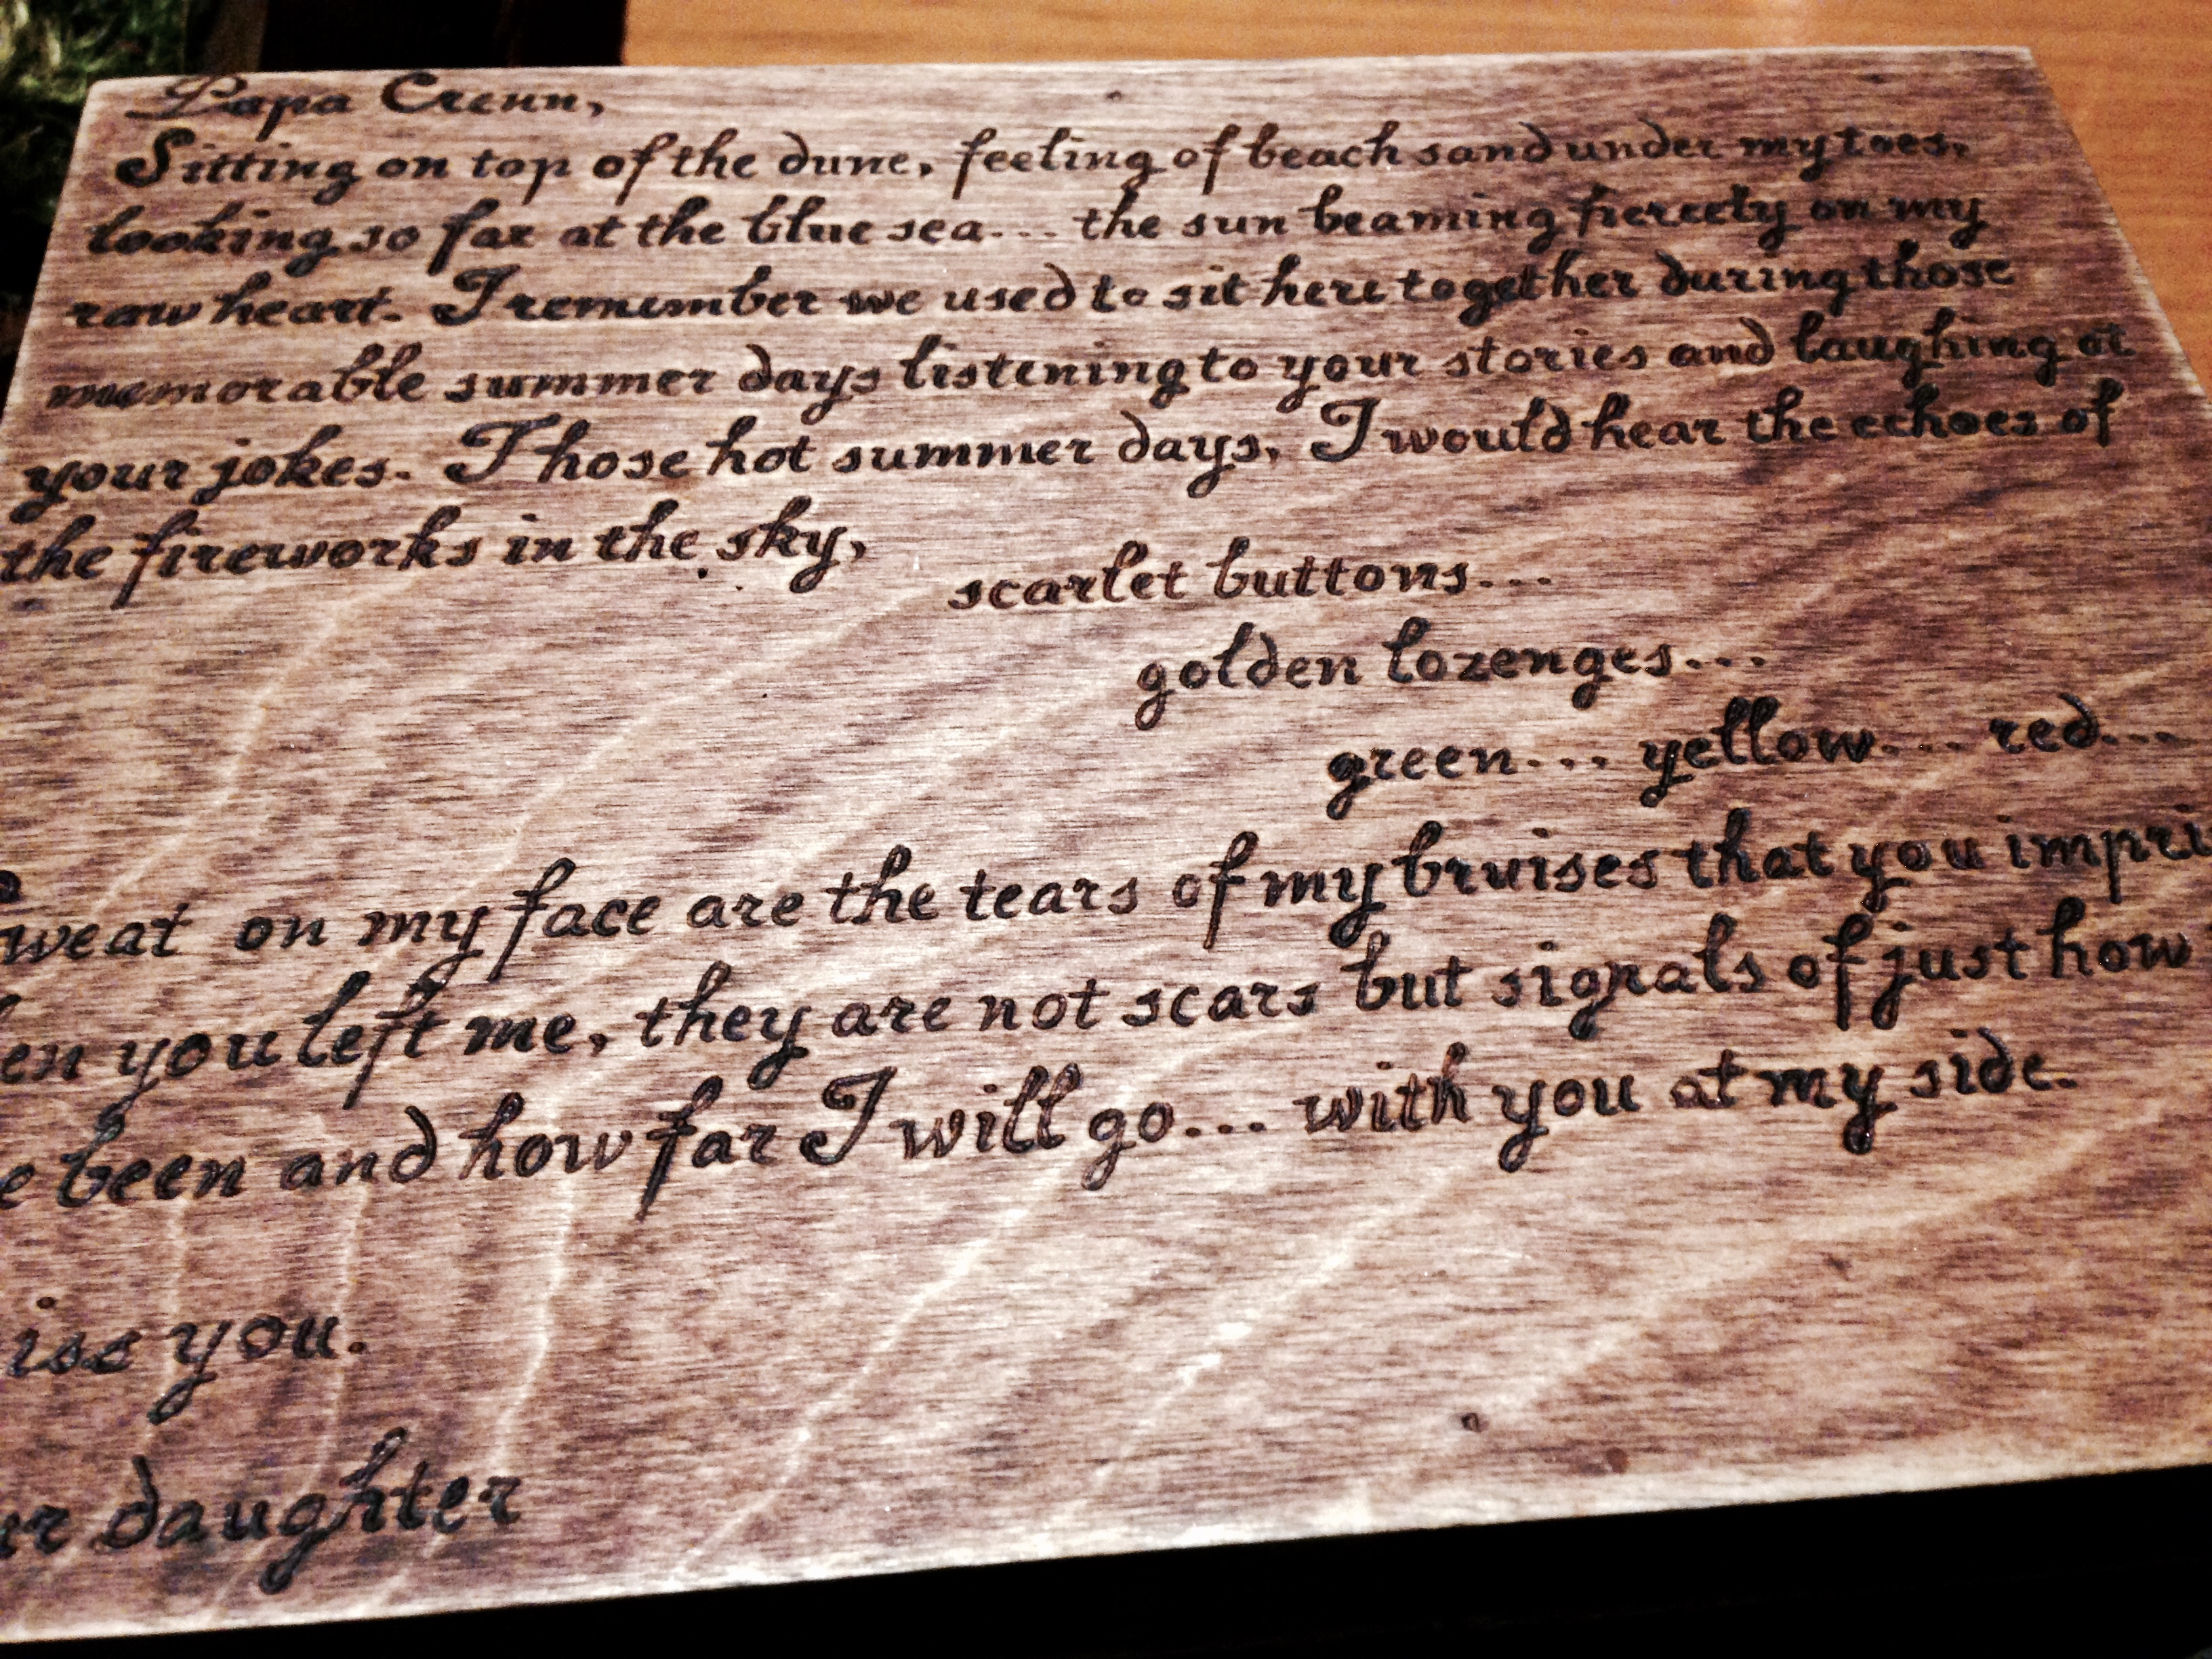 Papa Crenn,
Sitting on top of the dune, feeling of beach sand under my toes,
looking so far at the blue sea... the sun beaming fiercely on my
raw heart. I remember we used to sit here together during those
memorable summer days listening to your stories and laughing at
your jokes. Those hot summer days, I would hear the echoes of
the fireworks in the sky,
scarlet buttons...
golden lozenges...
green... yellow... red...
weat on my face are the tears of my bruises that you impri
en you left me, they are not scars but signals of just how
e been and how far I will go... with you at my side.
iss you.
ur daughter